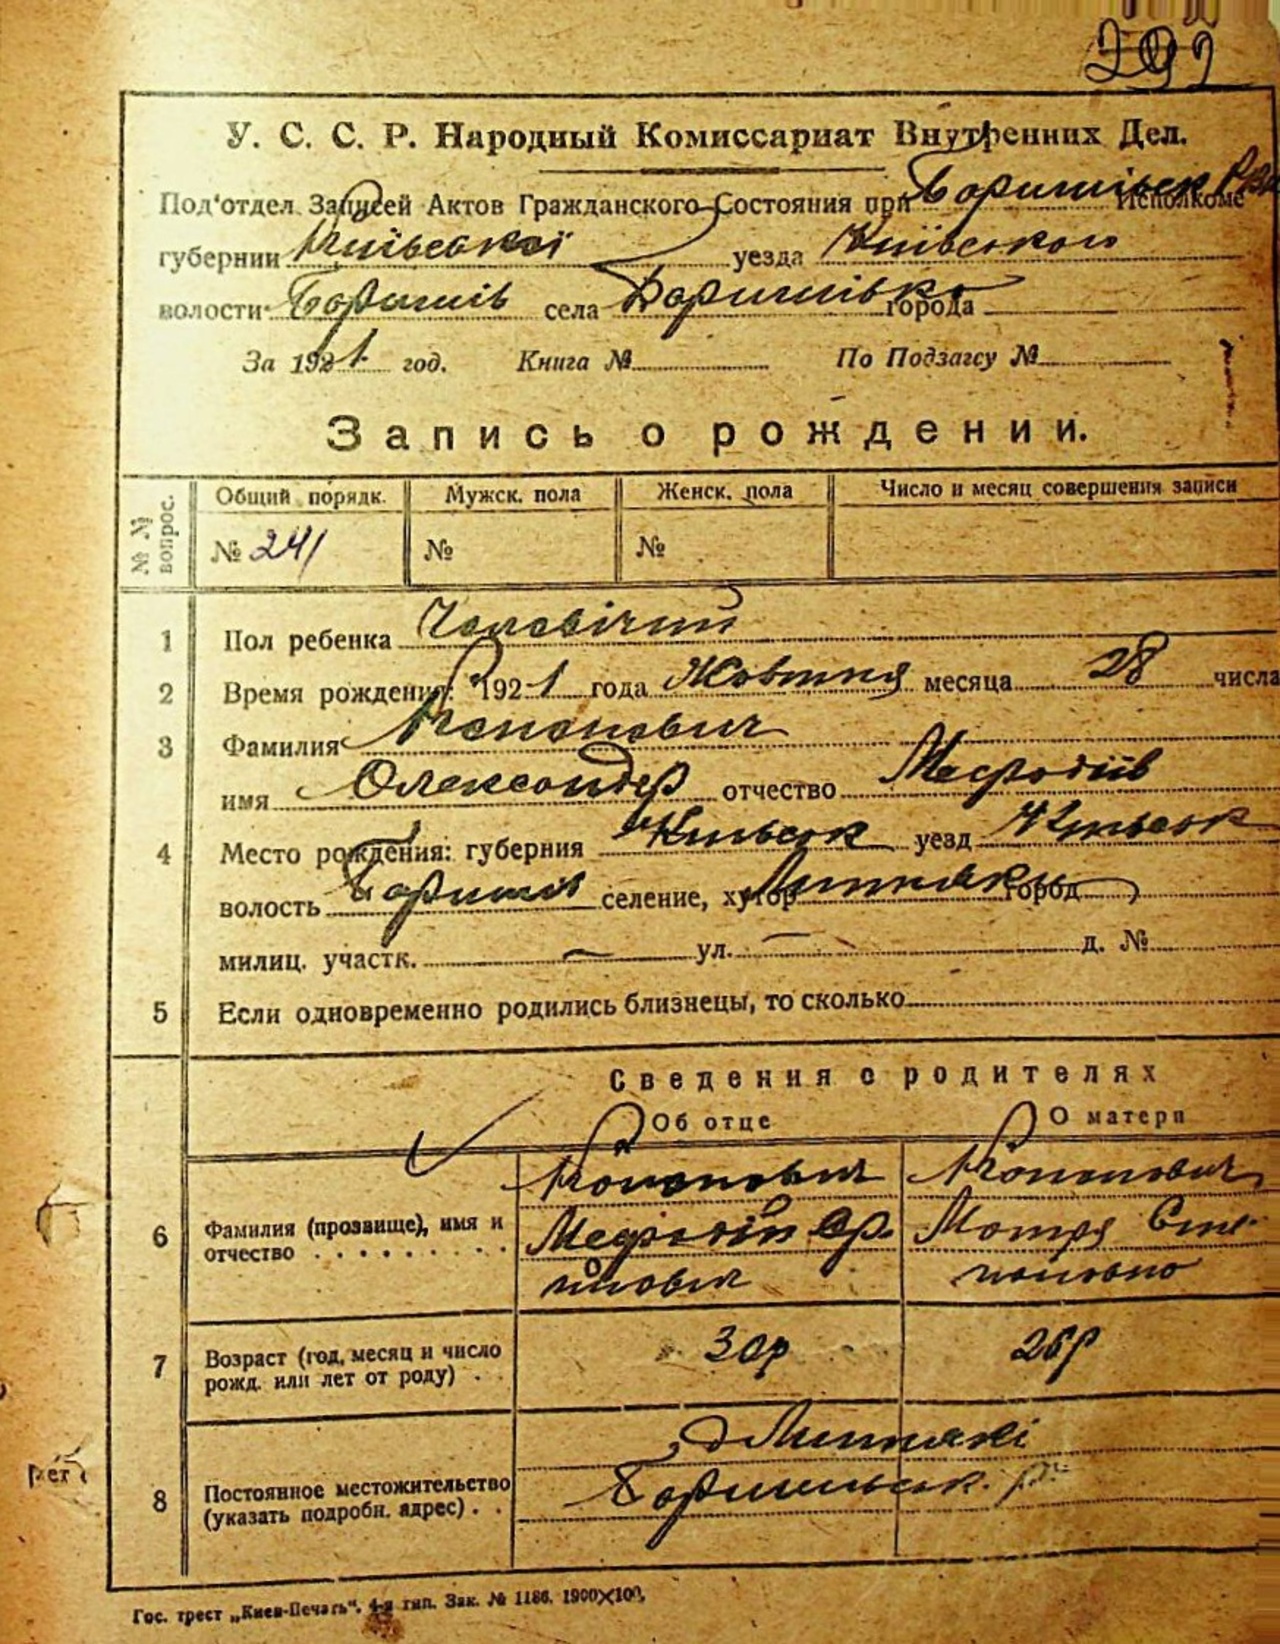 292
У. С. С. Р. Народный Комиссариат Внутренних Дел.
Под'отдел Записей Актов Гражданского Состояния при Исполкоме
губернии Київської уезда Київського
волости села города
За 1921 год. Книга № По Подзагсу №
Запись о рождении.
№ № вопрос.
Общий порядк. Мужск. пола Женск. пола Число и месяц совершения записи
№ 241 № №
1 Пол ребенка Чоловічий
2 Время рождения: 1921 года Жовтня месяца 28 числа
3 Фамилия Кононович
имя Олександер отчество Мефодіїв
4 Место рождения: губерния Київськ уезд Київськ
волость селение, хутор город
милиц. участк. — ул. — д. №
5 Если одновременно родились близнецы, то сколько
Сведения о родителях
Об отце О матери
6 Фамилия (прозвище), имя и отчество
Кононович Кононович
Мефодій Мотря Сте-
пановна
7 Возраст (год, месяц и число рожд. или лет от роду)
30р 26р
8 Постоянное местожительство (указать подробн. адрес)
Гос. трест „Киев-Печать“. 4-я тип. Зак. № 1186. 1900×100,